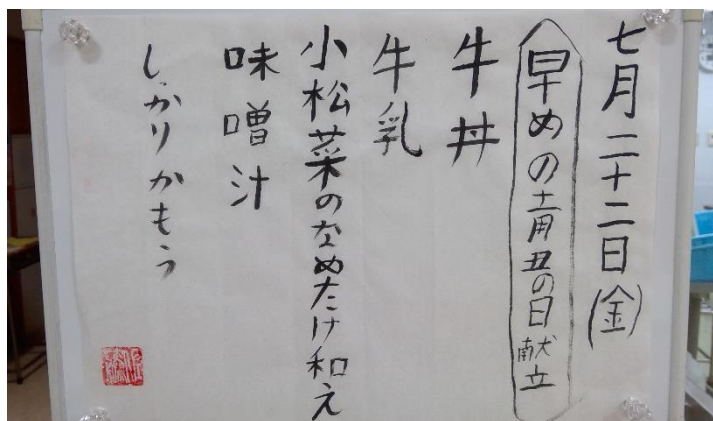 七月二十二日(金)
早めの土用丑の日献立
牛丼
牛乳
小松菜のなめたけ和え
味噌汁
しっかりかもう